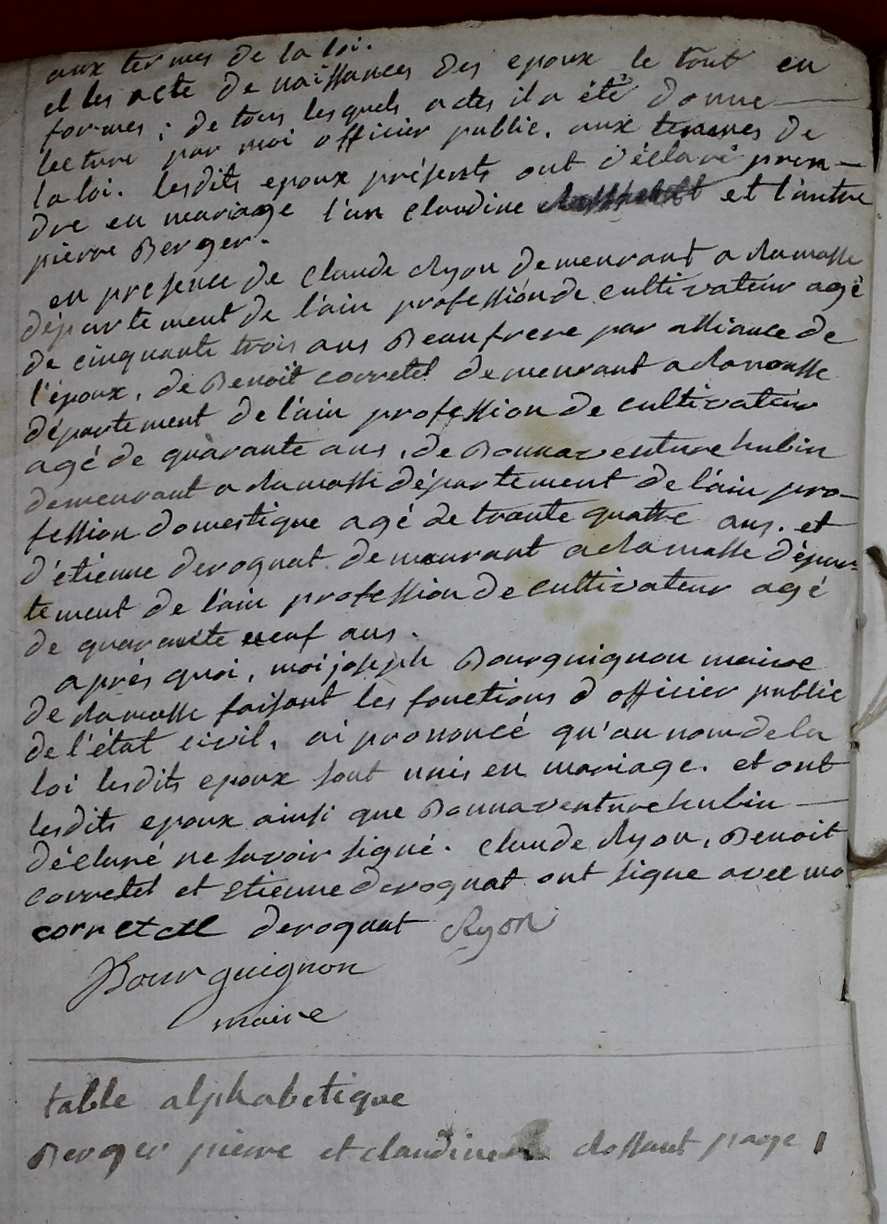 aux termes de la loi.
et les acte de naissances des epoux le tout en
formes ; de tous lesquels actes il a été donne
lecture par moi officier public. aux termes de
la loi. lesdits epoux présents ont déclaré pren-
dre en mariage l'un claudine et l'autre
pierre Berger.
en presence de Claude Ryon demeurant a Ramasse
département de l'ain profession de cultivateur agé
de cinquante trois ans Beaufrere par alliance de
l'époux, de Benoit corretel demeurant a Ramasse
département de l'ain profession de cultivateur
agé de quarante ans, de Bonnaventure hubin
demeurant a Ramasse département de l'ain pro-
fession domestique agé de trante quatre ans. et
d'étienne deroquat demeurant a Ramasse dépar-
tement de l'ain profession de cultivateur agé
de quarante neuf ans.
après quoi, moi joseph Bourguignon maire
de Ramasse faisant les fonctions d officier public
de l'état civil, ai prononcé qu'au nom de la
loi lesdits epoux sont unis en mariage. et ont
lesdits epoux ainsi que Bonnaventure hubin
déclaré ne savoir signé. Claude Ryon, Benoit
corretel et etienne deroquat ont signe avec mo
corretel deroquat Ryon
Bourguignon
maire
table alphabetique
Berger pierre et claudine page 1